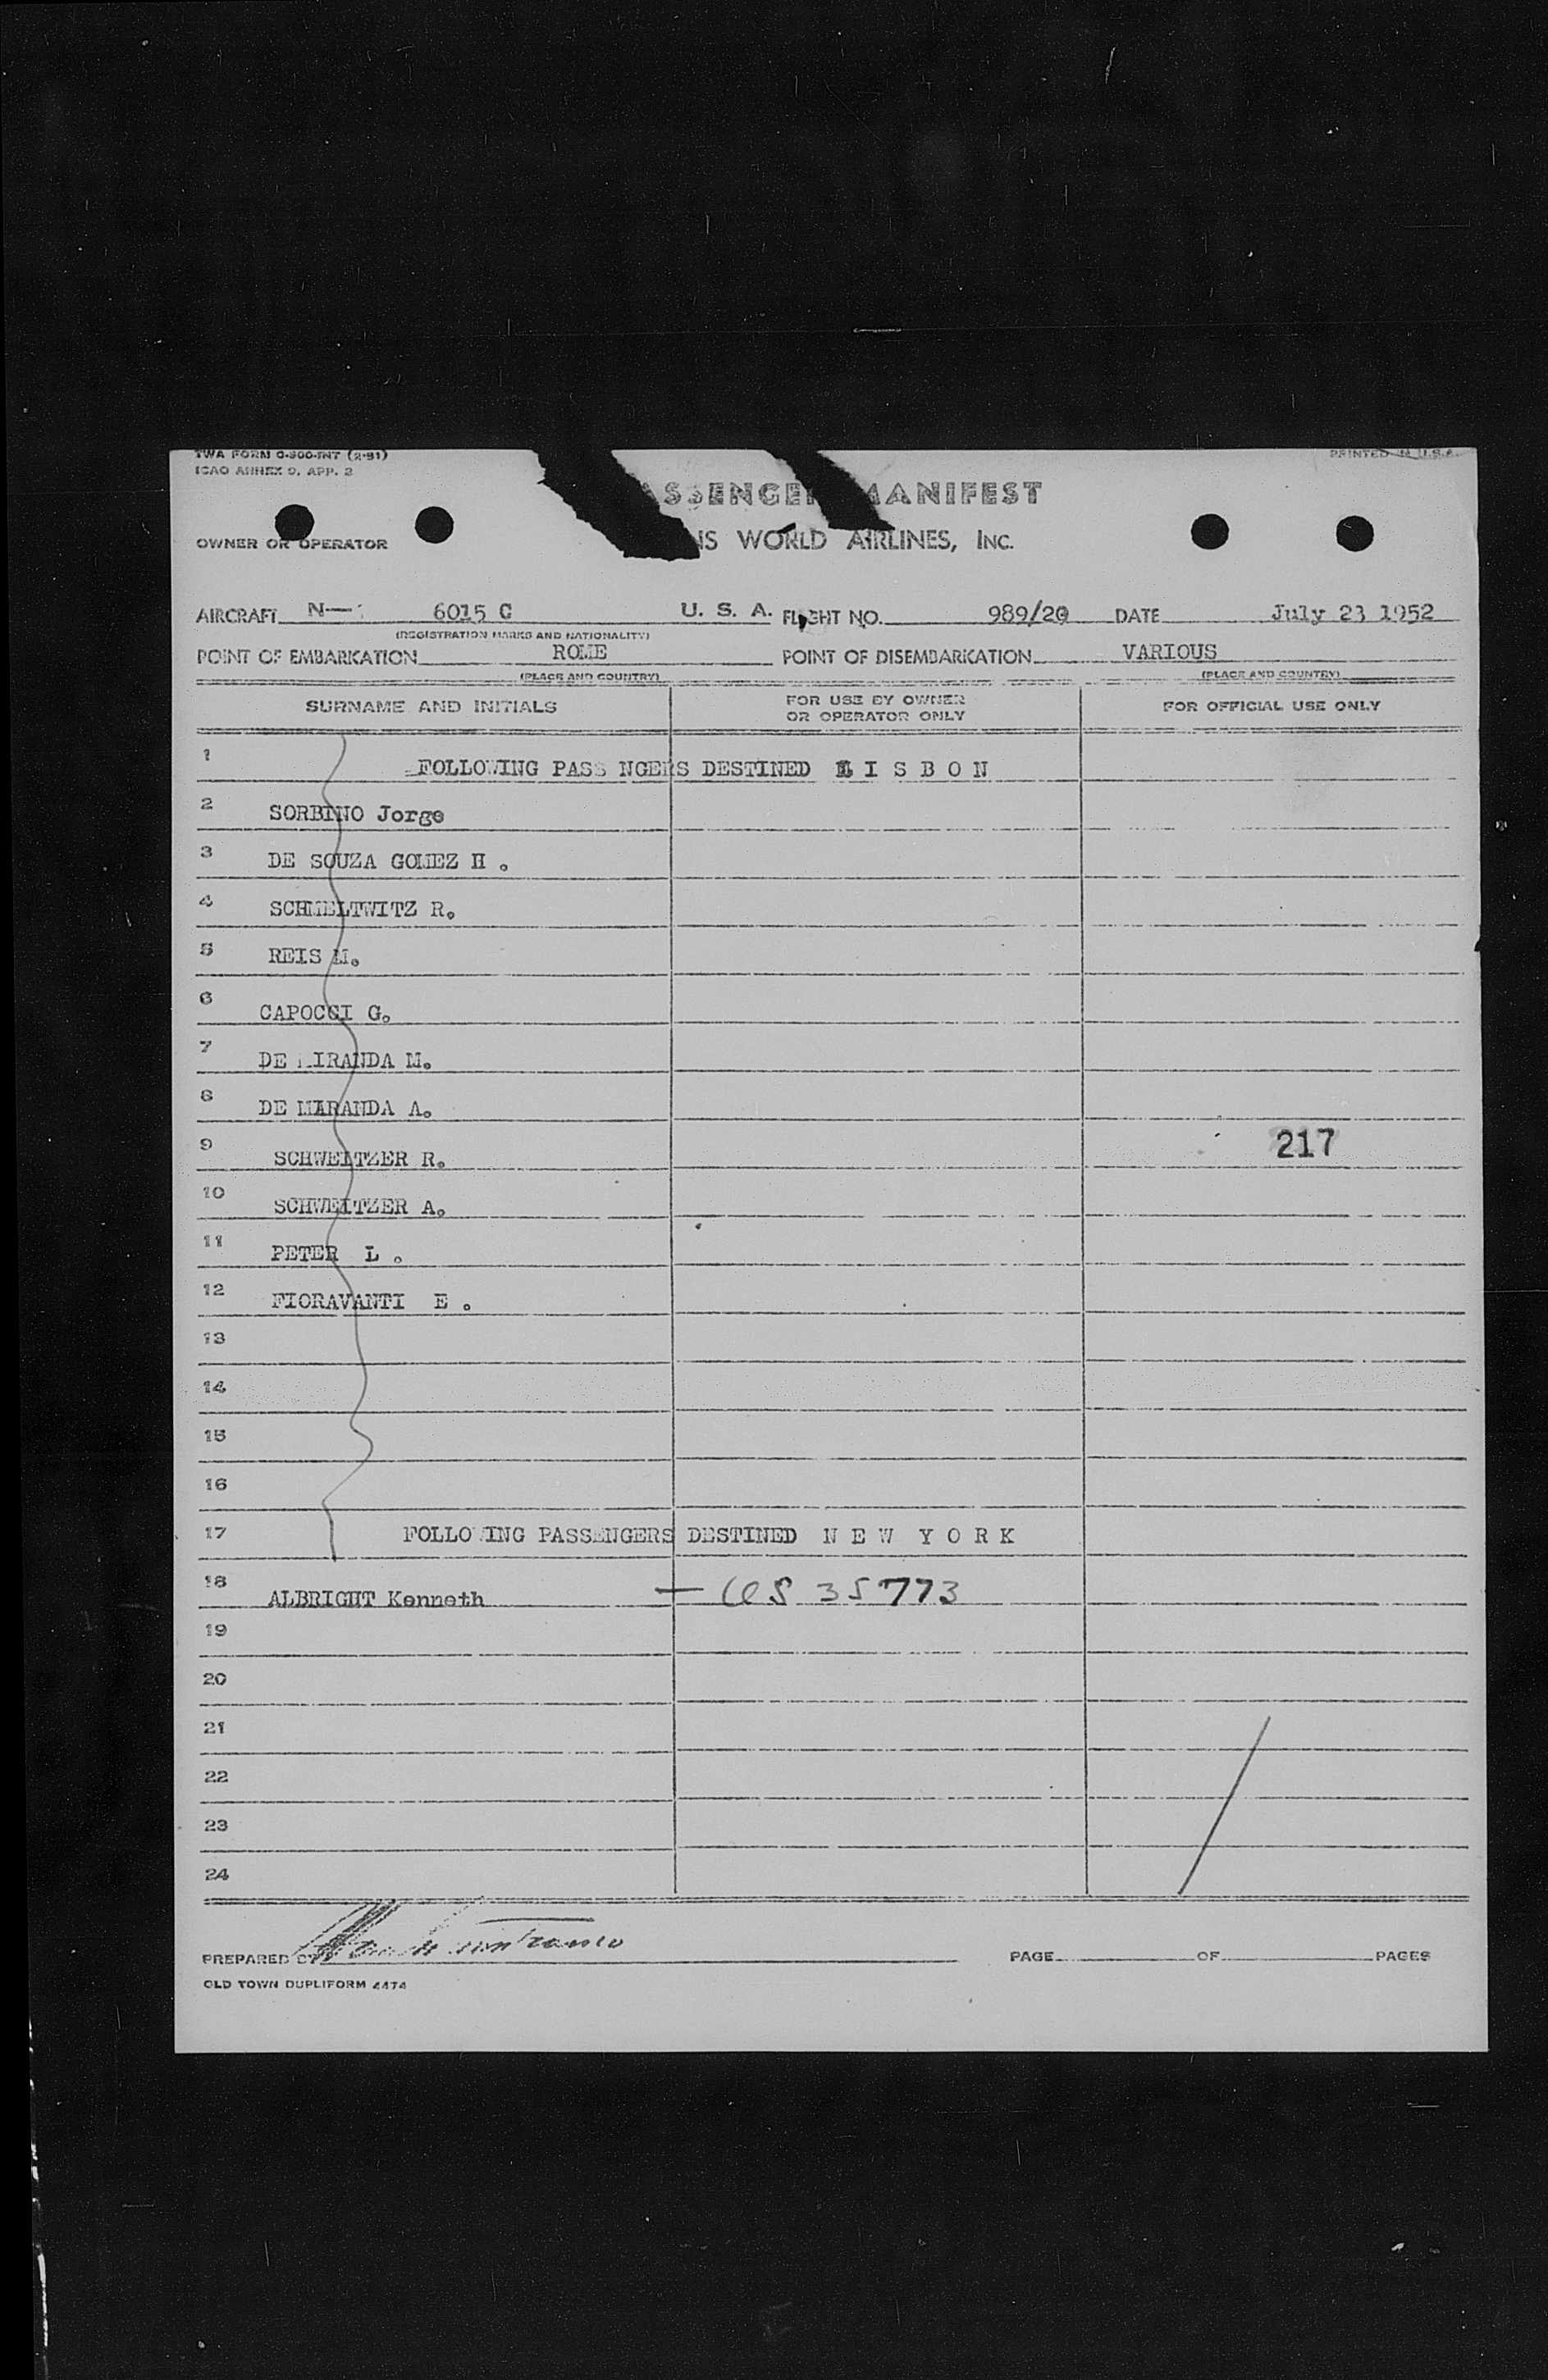 TWA FORM O-300-INT (2-51)
PRINTED IN U.S.A.
ICAO ANNEX 9, APP. 2
ASSENGER MANIFEST
OWNER OR OPERATOR
NS WORLD AIRLINES, INC.
AIRCRAFT N— 6015 C U. S. A. FLIGHT NO. 989/20 DATE July 23 1952
(REGISTRATION MARKS AND NATIONALITY)
POINT OF EMBARKATION ROME POINT OF DISEMBARKATION VARIOUS
(PLACE AND COUNTRY) (PLACE AND COUNTRY)
SURNAME AND INITIALS FOR USE BY OWNER OR OPERATOR ONLY FOR OFFICIAL USE ONLY
1 FOLLOWING PASS NGERS DESTINED L I S B O N
2 SORBINO Jorge
3 DE SOUZA GOMEZ H .
4 SCHMELTWITZ R.
5 REIS M.
6 CAPOCCI G.
7 DE MIRANDA M.
8 DE MIRANDA A.
9 SCHWEITZER R. 217
10 SCHWEITZER A.
11 PETER L .
12 FIORAVANTI E .
13
14
15
16
17 FOLLOWING PASSENGERS DESTINED N E W Y O R K
18 ALBRIGHT Kenneth — US 35773
19
20
21
22
23
24
PREPARED BY PAGE OF PAGES
OLD TOWN DUPLIFORM 4474